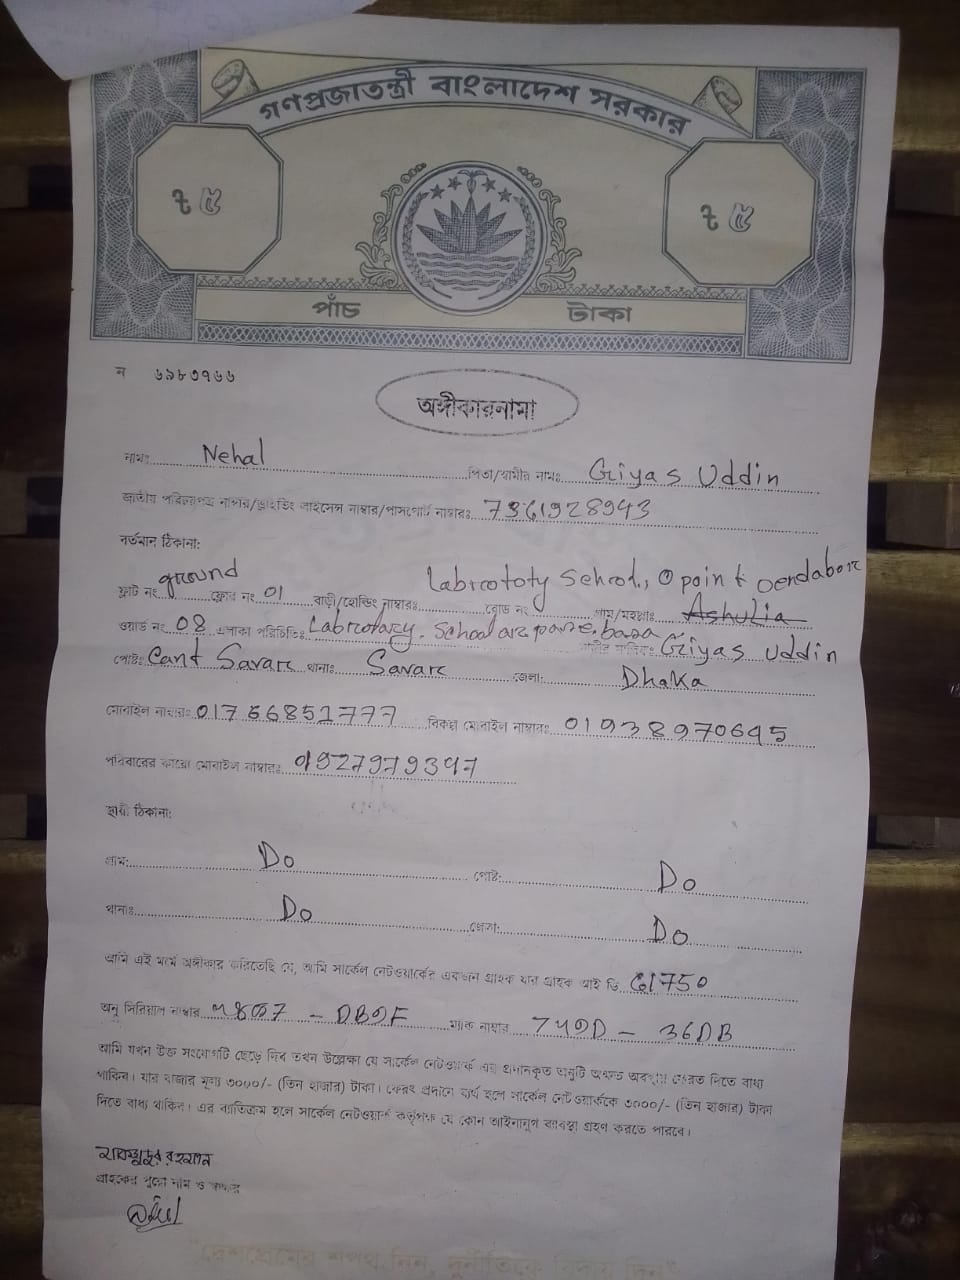 গণপ্রজাতন্ত্রী বাংলাদেশ সরকার
৳ ৫ ৳ ৫
পাঁচ টাকা
ন ৬৯৮৩৭৬৬
অঙ্গীকারনামা
নামঃ Nehal পিতা/স্বামীর নামঃ Giyas Uddin
জাতীয় পরিচয়পত্র নাম্বার/ড্রাইভিং লাইসেন্স নাম্বার/পাসপোর্ট নাম্বারঃ 7361928943
বর্তমান ঠিকানা:
ফ্লাট নং ground ফ্লোর নং 01 বাড়ী/হোল্ডিং নাম্বারঃ Labrcototy School, রোড নং point গ্রাম/মহল্লাঃ Dendabore Ashulia
ওয়ার্ড নং 08 এলাকা পরিচিতিঃ Labrcotary. School Giyas Uddin
পোষ্টঃ Cant Savarc থানাঃ Savarc জেলা: Dhaka
মোবাইল নাম্বারঃ 01766851777 বিকল্প মোবাইল নাম্বারঃ 01938970645
পরিবারের কারো মোবাইল নাম্বারঃ 01927979397
স্থায়ী ঠিকানা:
গ্রাম: Do পোষ্ট: Do
থানাঃ Do জেলা: Do
আমি এই মর্মে অঙ্গীকার করিতেছি যে, আমি সার্কেল নেটওয়ার্কের একজন গ্রাহক যার গ্রাহক আই ডি 61750
অনু সিরিয়াল নাম্বার ম্যাক নাম্বার - 36DB
আমি যখন উক্ত সংযোগটি ছেড়ে দিব তখন উল্লেক্ষা যে সার্কেল নেটওয়ার্ক এর প্রদানকৃত অনুটি অক্ষত অবস্থায় ফেরত দিতে বাধ্য
থাকিব। যার বাজার মূল্য ৩০০০/- (তিন হাজার) টাকা। ফেরৎ প্রদানে ব্যর্থ হলে সার্কেল নেটওয়ার্ককে ৩০০০/- (তিন হাজার) টাকা
দিতে বাধ্য থাকিব। এর ব্যতিক্রম হলে সার্কেল নেটওয়ার্ক কর্তৃপক্ষ যে কোন আইনানুগ ব্যবস্থা গ্রহণ করতে পারবে।
রহমান
গ্রাহকের পুরো নাম ও স্বাক্ষর
"দেশপ্রেমের শপথ নিন, দুর্নীতিকে বিদায় দিন"